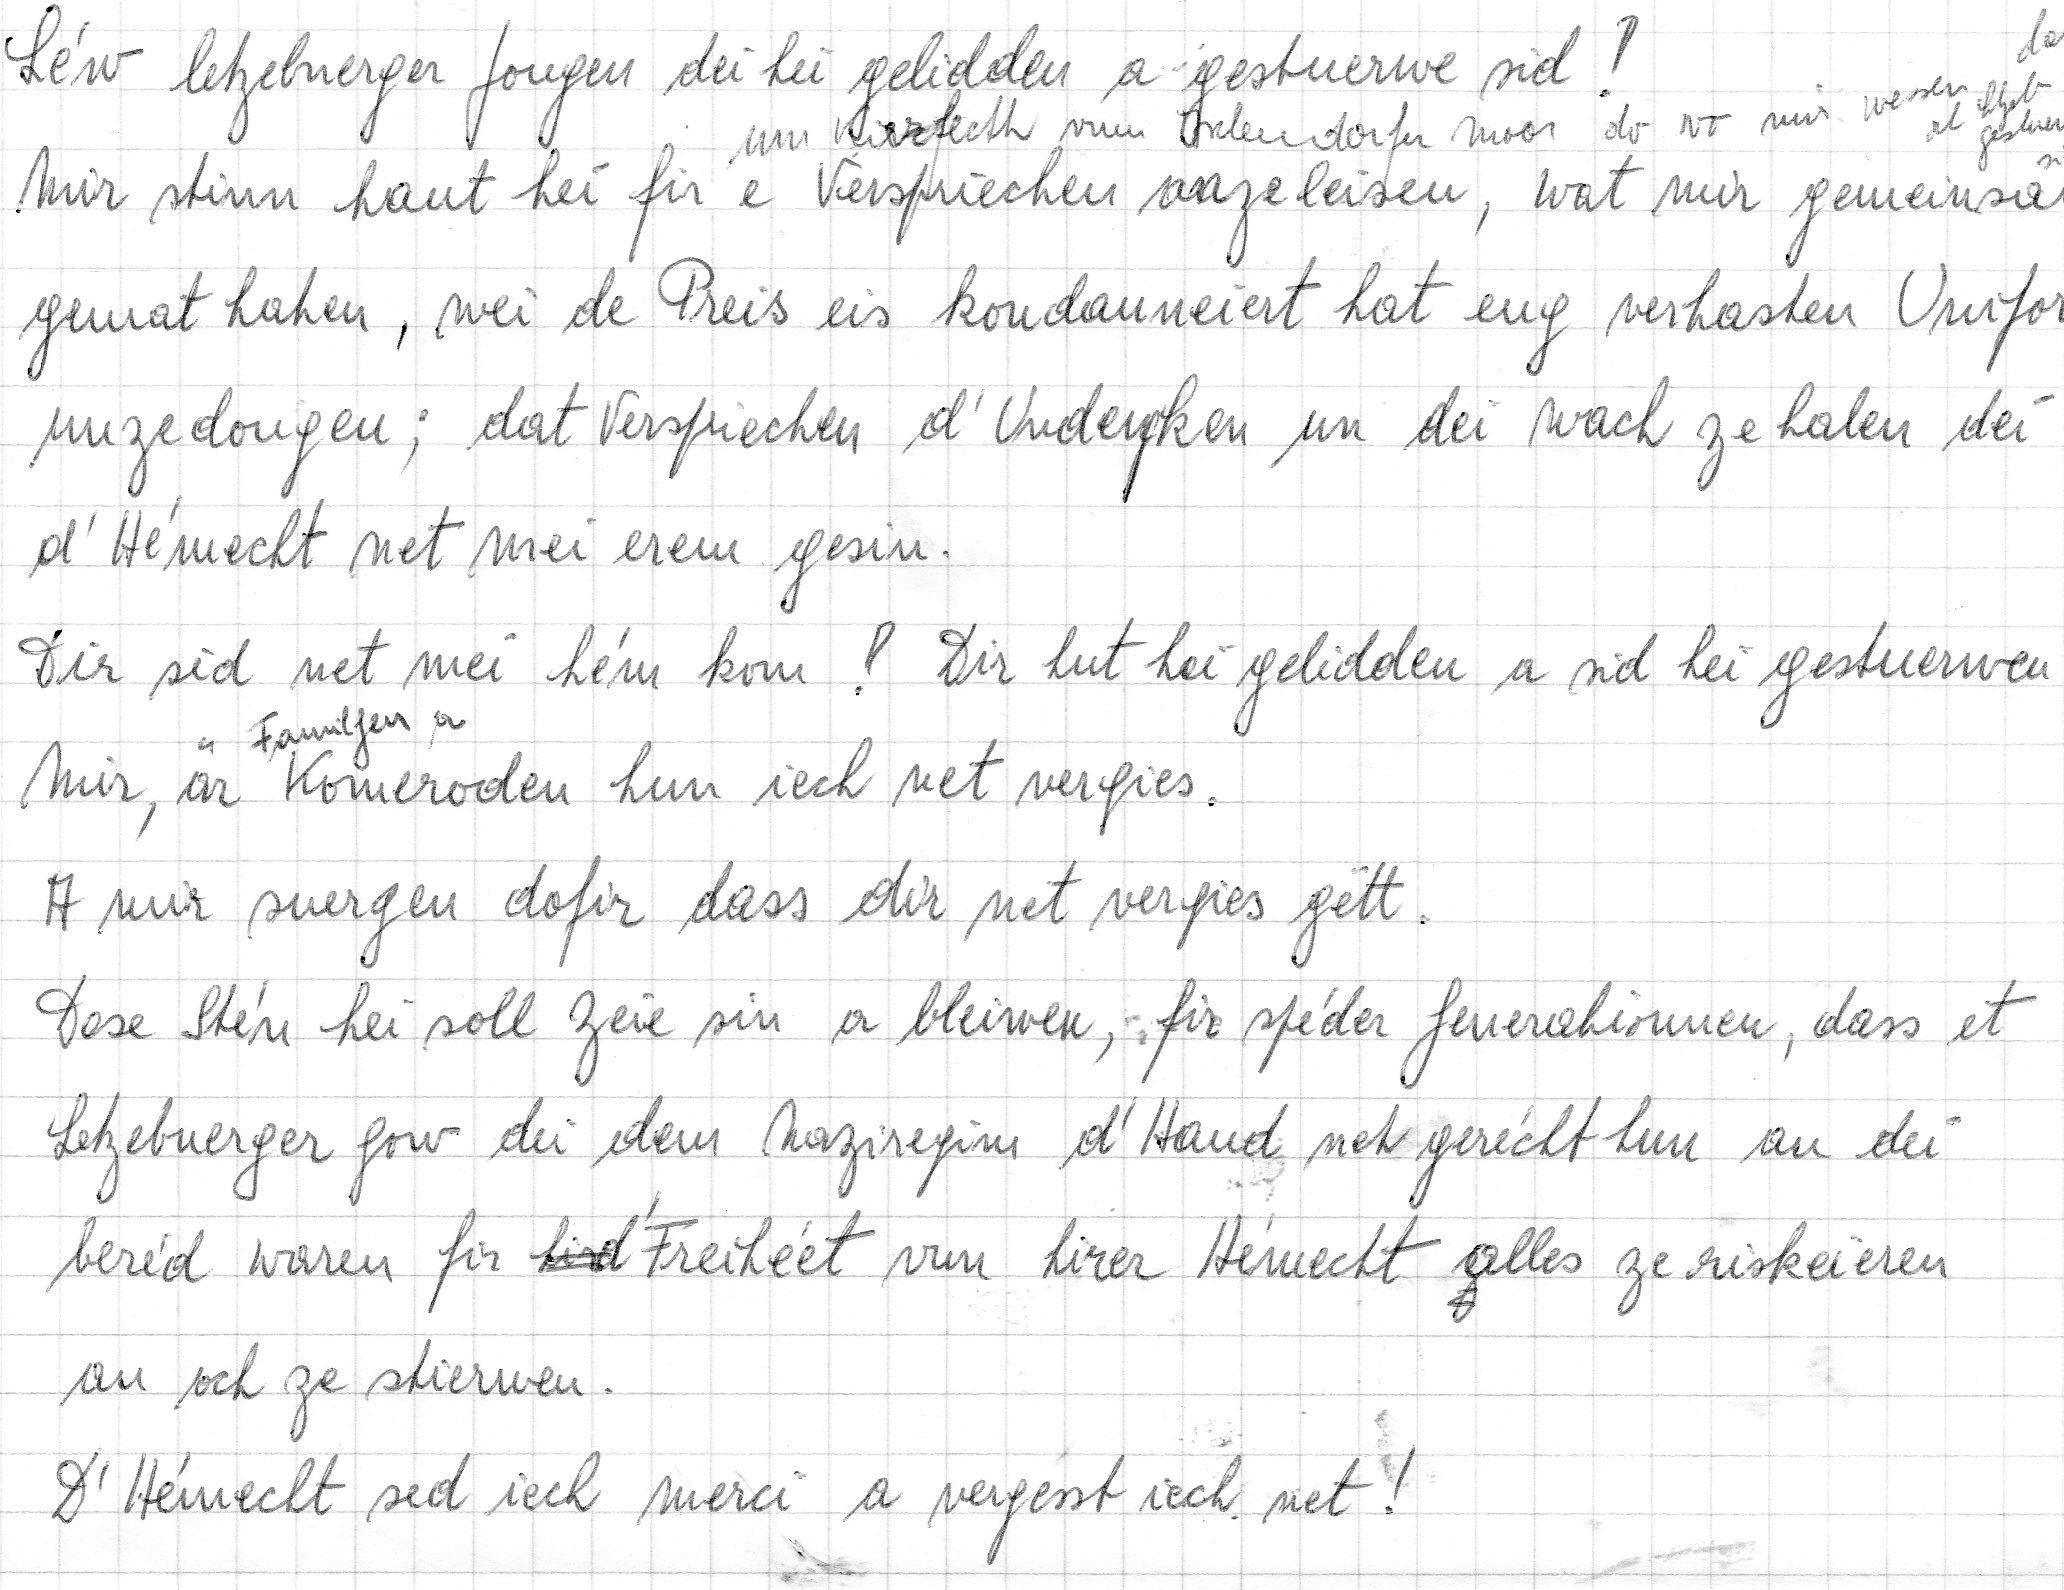 Léw letzebuerger Jongen déi hei gelidden a gestuerwe sid!
um Kierfecht vum Uelendorfer Moor do wo mir wessen dat
Mir stinn haut hei fir e Verspriechen anzeleisen, wat mir gemeinsa
gemat hahen, wei de Preis eis kondamneiert hat eng verhasten Unifor
unzedongen; dat Verspriechen d'Undenken un dei wach ze halen dei
d'Hémecht net mei erem gesin.
Dir sid net mei hém kom! Dir hut hei gelidden a sid hei gestuerwen
Familjen a
Mir, är Komeroden hun iech net vergies.
A mir suergen dofir dass dir net vergies gëtt.
Dese Stén hei soll Zeie sin a bleiwen, fir spéder Generatiounen, dass et
Letzebuerger gow dei dem Naziregim d'Hand net gerécht hun an dei
beréd waren fir d'Freihéet vun hirer Hémecht alles ze riskeieren
an och ze stierwen.
D'Hémecht sed iech merci a vergesst iech net!